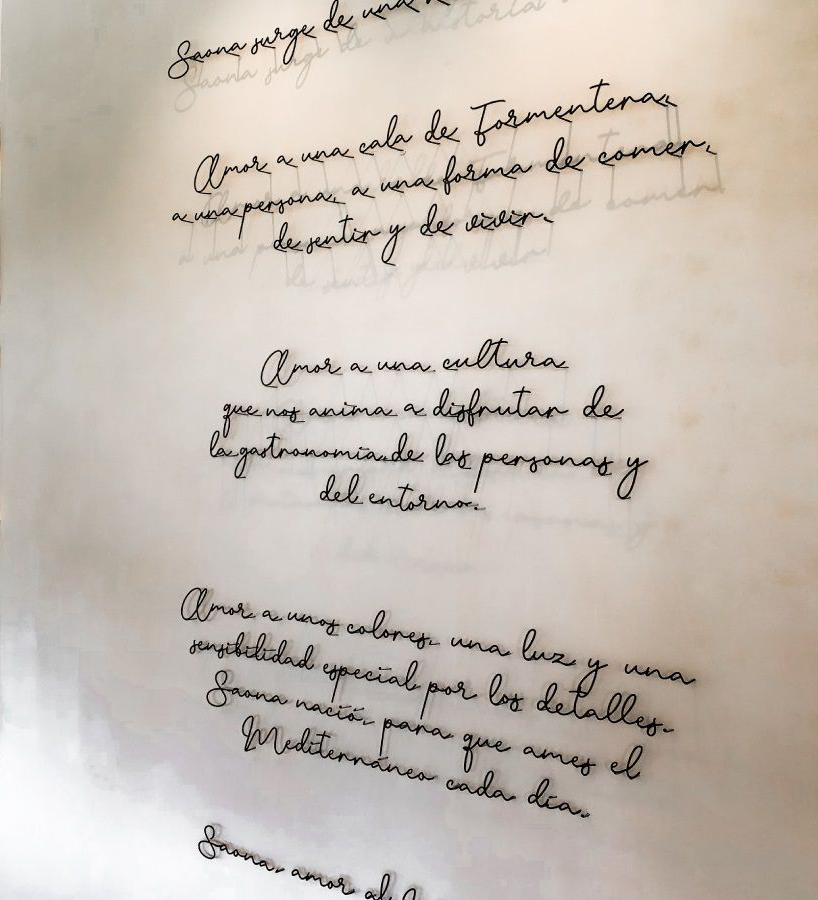 Saona surge de una
Amor a una cala de Formentera,
a una persona, a una forma de comer,
de sentir y de vivir.
Amor a una cultura
que nos anima a disfrutar de
la gastronomía, de las personas y
del entorno.
Amor a unos colores, una luz y una
sensibilidad especial por los detalles.
Saona nació, para que ames el
Mediterráneo cada día.
Saona, amor al